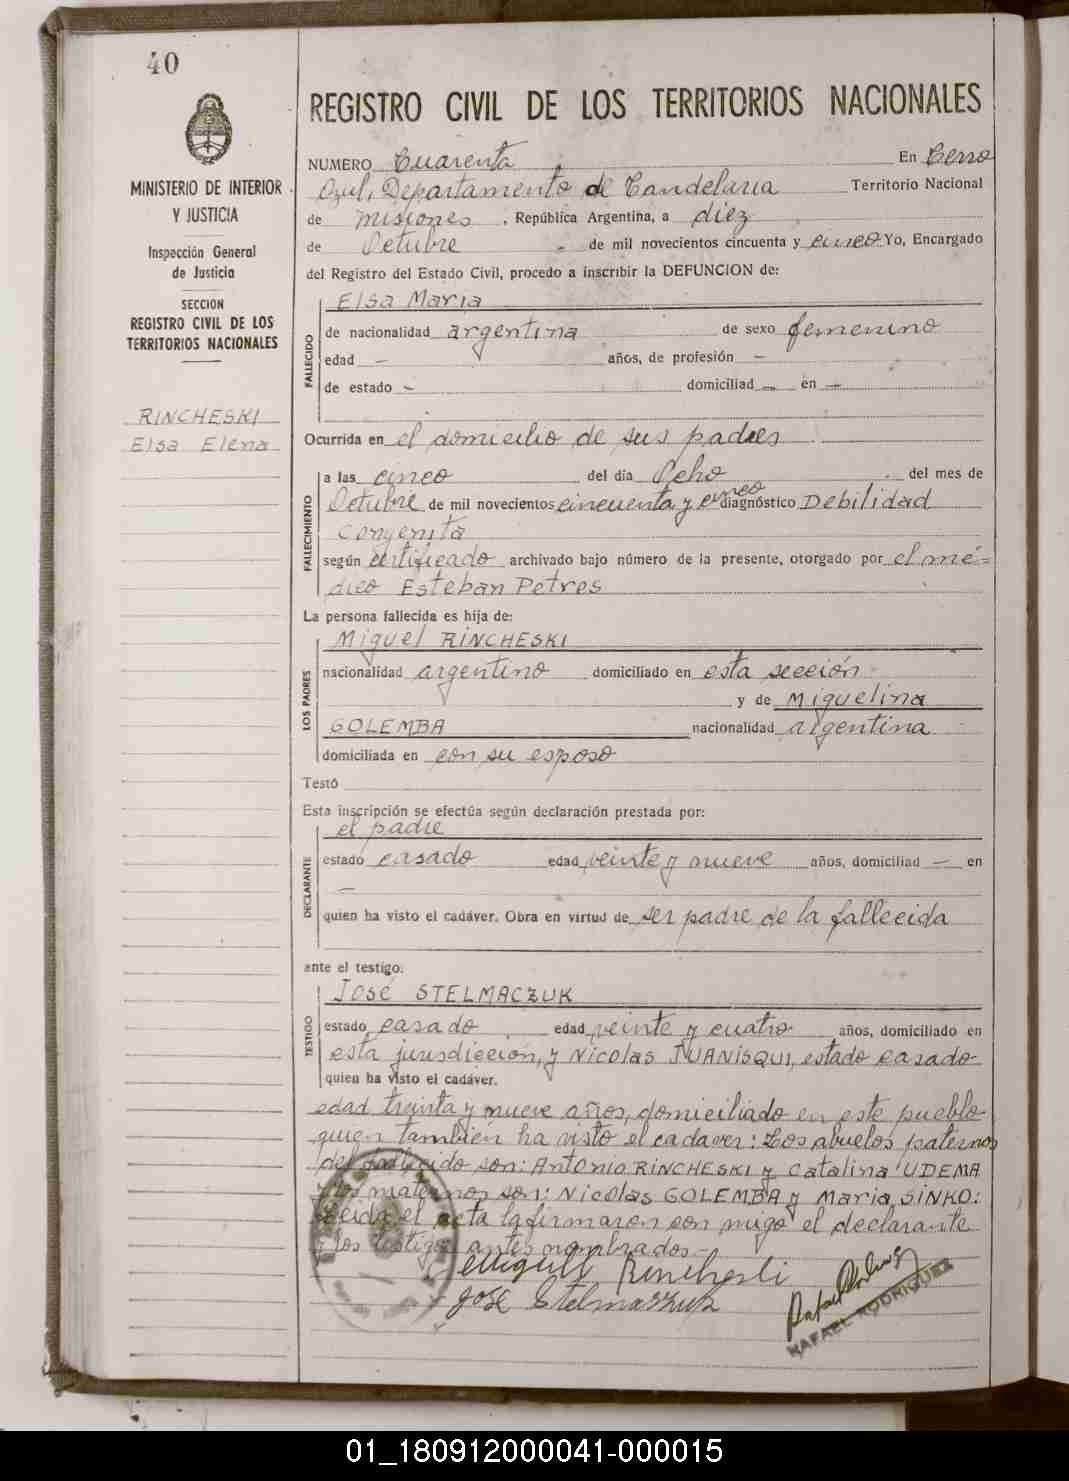 40
MINISTERIO DE INTERIOR
Y JUSTICIA
Inspección General
de Justicia
SECCION
REGISTRO CIVIL DE LOS
TERRITORIOS NACIONALES
RINCHESKI
Elsa Elena
REGISTRO CIVIL DE LOS TERRITORIOS NACIONALES
NUMERO Cuarenta En Cerro
Azul, Departamento de Candelaria Territorio Nacional
de Misiones , República Argentina, a diez
de Octubre - de mil novecientos cincuenta y cinco Yo, Encargado
del Registro del Estado Civil, procedo a inscribir la DEFUNCION de:
FALLECIDO
Elsa Maria
de nacionalidad argentina de sexo femenino
edad — años, de profesión —
de estado — domiciliad — en —
Ocurrida en el domicilio de sus padres
FALLECIMIENTO
a las cinco del día Ocho del mes de
Octubre de mil novecientos cincuenta y cinco diagnóstico Debilidad
Congenita
según certificado archivado bajo número de la presente, otorgado por el mé=
dico Esteban Petres
La persona fallecida es hija de:
LOS PADRES
Miguel RINCHESKI
nacionalidad argentino domiciliado en esta sección
y de Miguelina
GOLEMBA nacionalidad argentina
domiciliada en con su esposo
Testó
Esta inscripción se efectúa según declaración prestada por:
DECLARANTE
el padre
estado casado edad veinte y nueve años, domiciliad — en
—
quien ha visto el cadáver. Obra en virtud de ser padre de la fallecida
ante el testigo:
TESTIGO
José STELMACZUK
estado casado edad veinte y cuatro años, domiciliado en
esta jurisdicción, y Nicolas JUANISQUI, estado casado
quien ha visto el cadáver.
edad treinta y nueve años, domiciliado en este pueblo
quien también ha visto el cadaver: Los abuelos paternos
del fallecido son: Antonio RINCHESKI y Catalina UDEMA
y los maternos son: Nicolas GOLEMBA y Maria SINKO:
Leida el acta la firmaron con migo el declarante
y los testigos antes nombrados.-
Miguel Rincheski
José Stelmaszuk
RAFAEL RODRIGUEZ
01_180912000041-000015